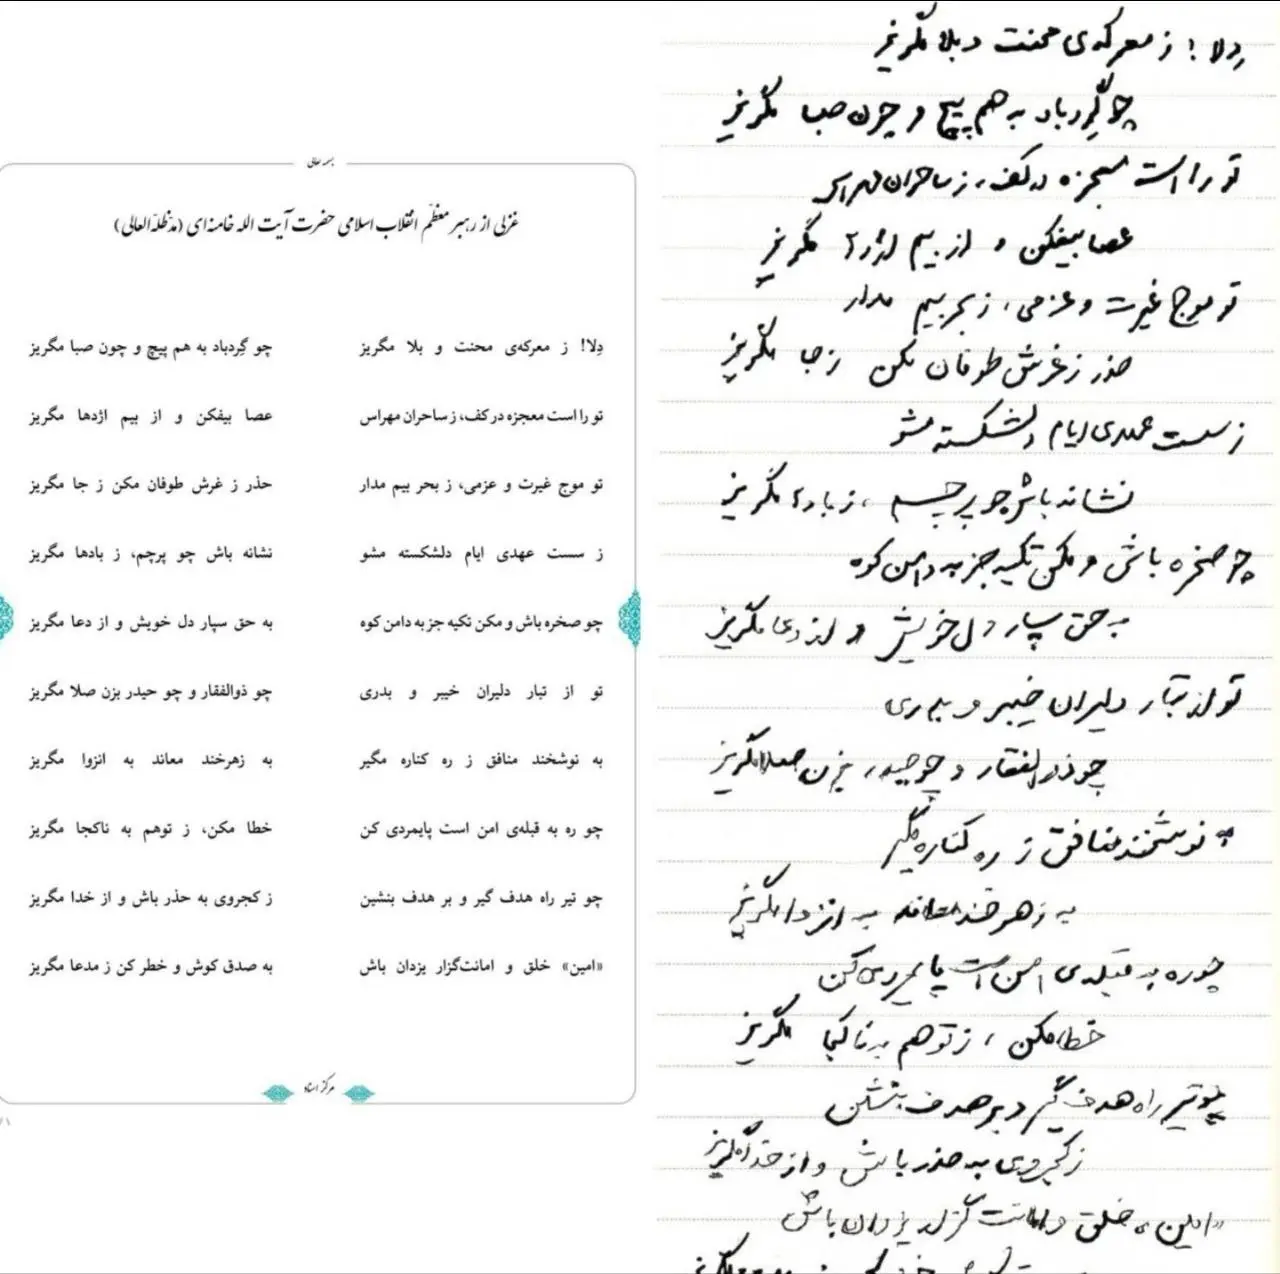 بسمه تعالی
غزلی از رهبر معظّم انقلاب اسلامی حضرت آیت الله خامنه‌ای (مدّظلّه‌العالی)
دِلا! ز معرکه‌ی محنت و بلا مگریز چو گِردباد به هم پیچ و چون صبا مگریز
تو را است معجزه در کف، ز ساحران مهراس عصا بیفکن و از بیم اژدها مگریز
تو موج غیرت و عزمی، ز بحر بیم مدار حذر ز غرش طوفان مکن ز جا مگریز
ز سست عهدی ایام دلشکسته مشو نشانه باش چو پرچم، ز بادها مگریز
چو صخره باش و مکن تکیه جز به دامن کوه به حق سپار دل خویش و از دعا مگریز
تو از تبار دلیران خیبر و بدری چو ذوالفقار و چو حیدر بزن صلا مگریز
به نوشخند منافق ز ره کناره مگیر به زهرخند معاند به انزوا مگریز
چو ره به قبله‌ی امن است پایمردی کن خطا مکن، ز توهم به ناکجا مگریز
چو تیر راه هدف گیر و بر هدف بنشین ز کجروی به حذر باش و از خدا مگریز
«امین» خلق و امانت‌گزار یزدان باش به صدق کوش و خطر کن ز مدعا مگریز
مرکز اسناد
دِلا! ز معرکه‌ی محنت و بلا مگریز
چو گِردباد به هم پیچ و چون صبا مگریز
تو را است معجزه در کف، ز ساحران مهراس
عصا بیفکن و از بیم اژدها مگریز
تو موج غیرت و عزمی، ز بحر بیم مدار
حذر ز غرش طوفان مکن ز جا مگریز
ز سست عهدی ایام دلشکسته مشو
نشانه باش چو پرچم، ز بادها مگریز
چو صخره باش و مکن تکیه جز به دامن کوه
به حق سپار دل خویش و از دعا مگریز
تو از تبار دلیران خیبر و بدری
چو ذوالفقار و چو حیدر بزن صلا مگریز
به نوشخند منافق ز ره کناره مگیر
به زهرخند معاند به انزوا مگریز
چو ره به قبله‌ی امن است پایمردی کن
خطا مکن، ز توهم به ناکجا مگریز
چو تیر راه هدف گیر و بر هدف بنشین
ز کجروی به حذر باش و از خدا مگریز
«امین» خلق و امانت گزار یزدان باش
مگریز